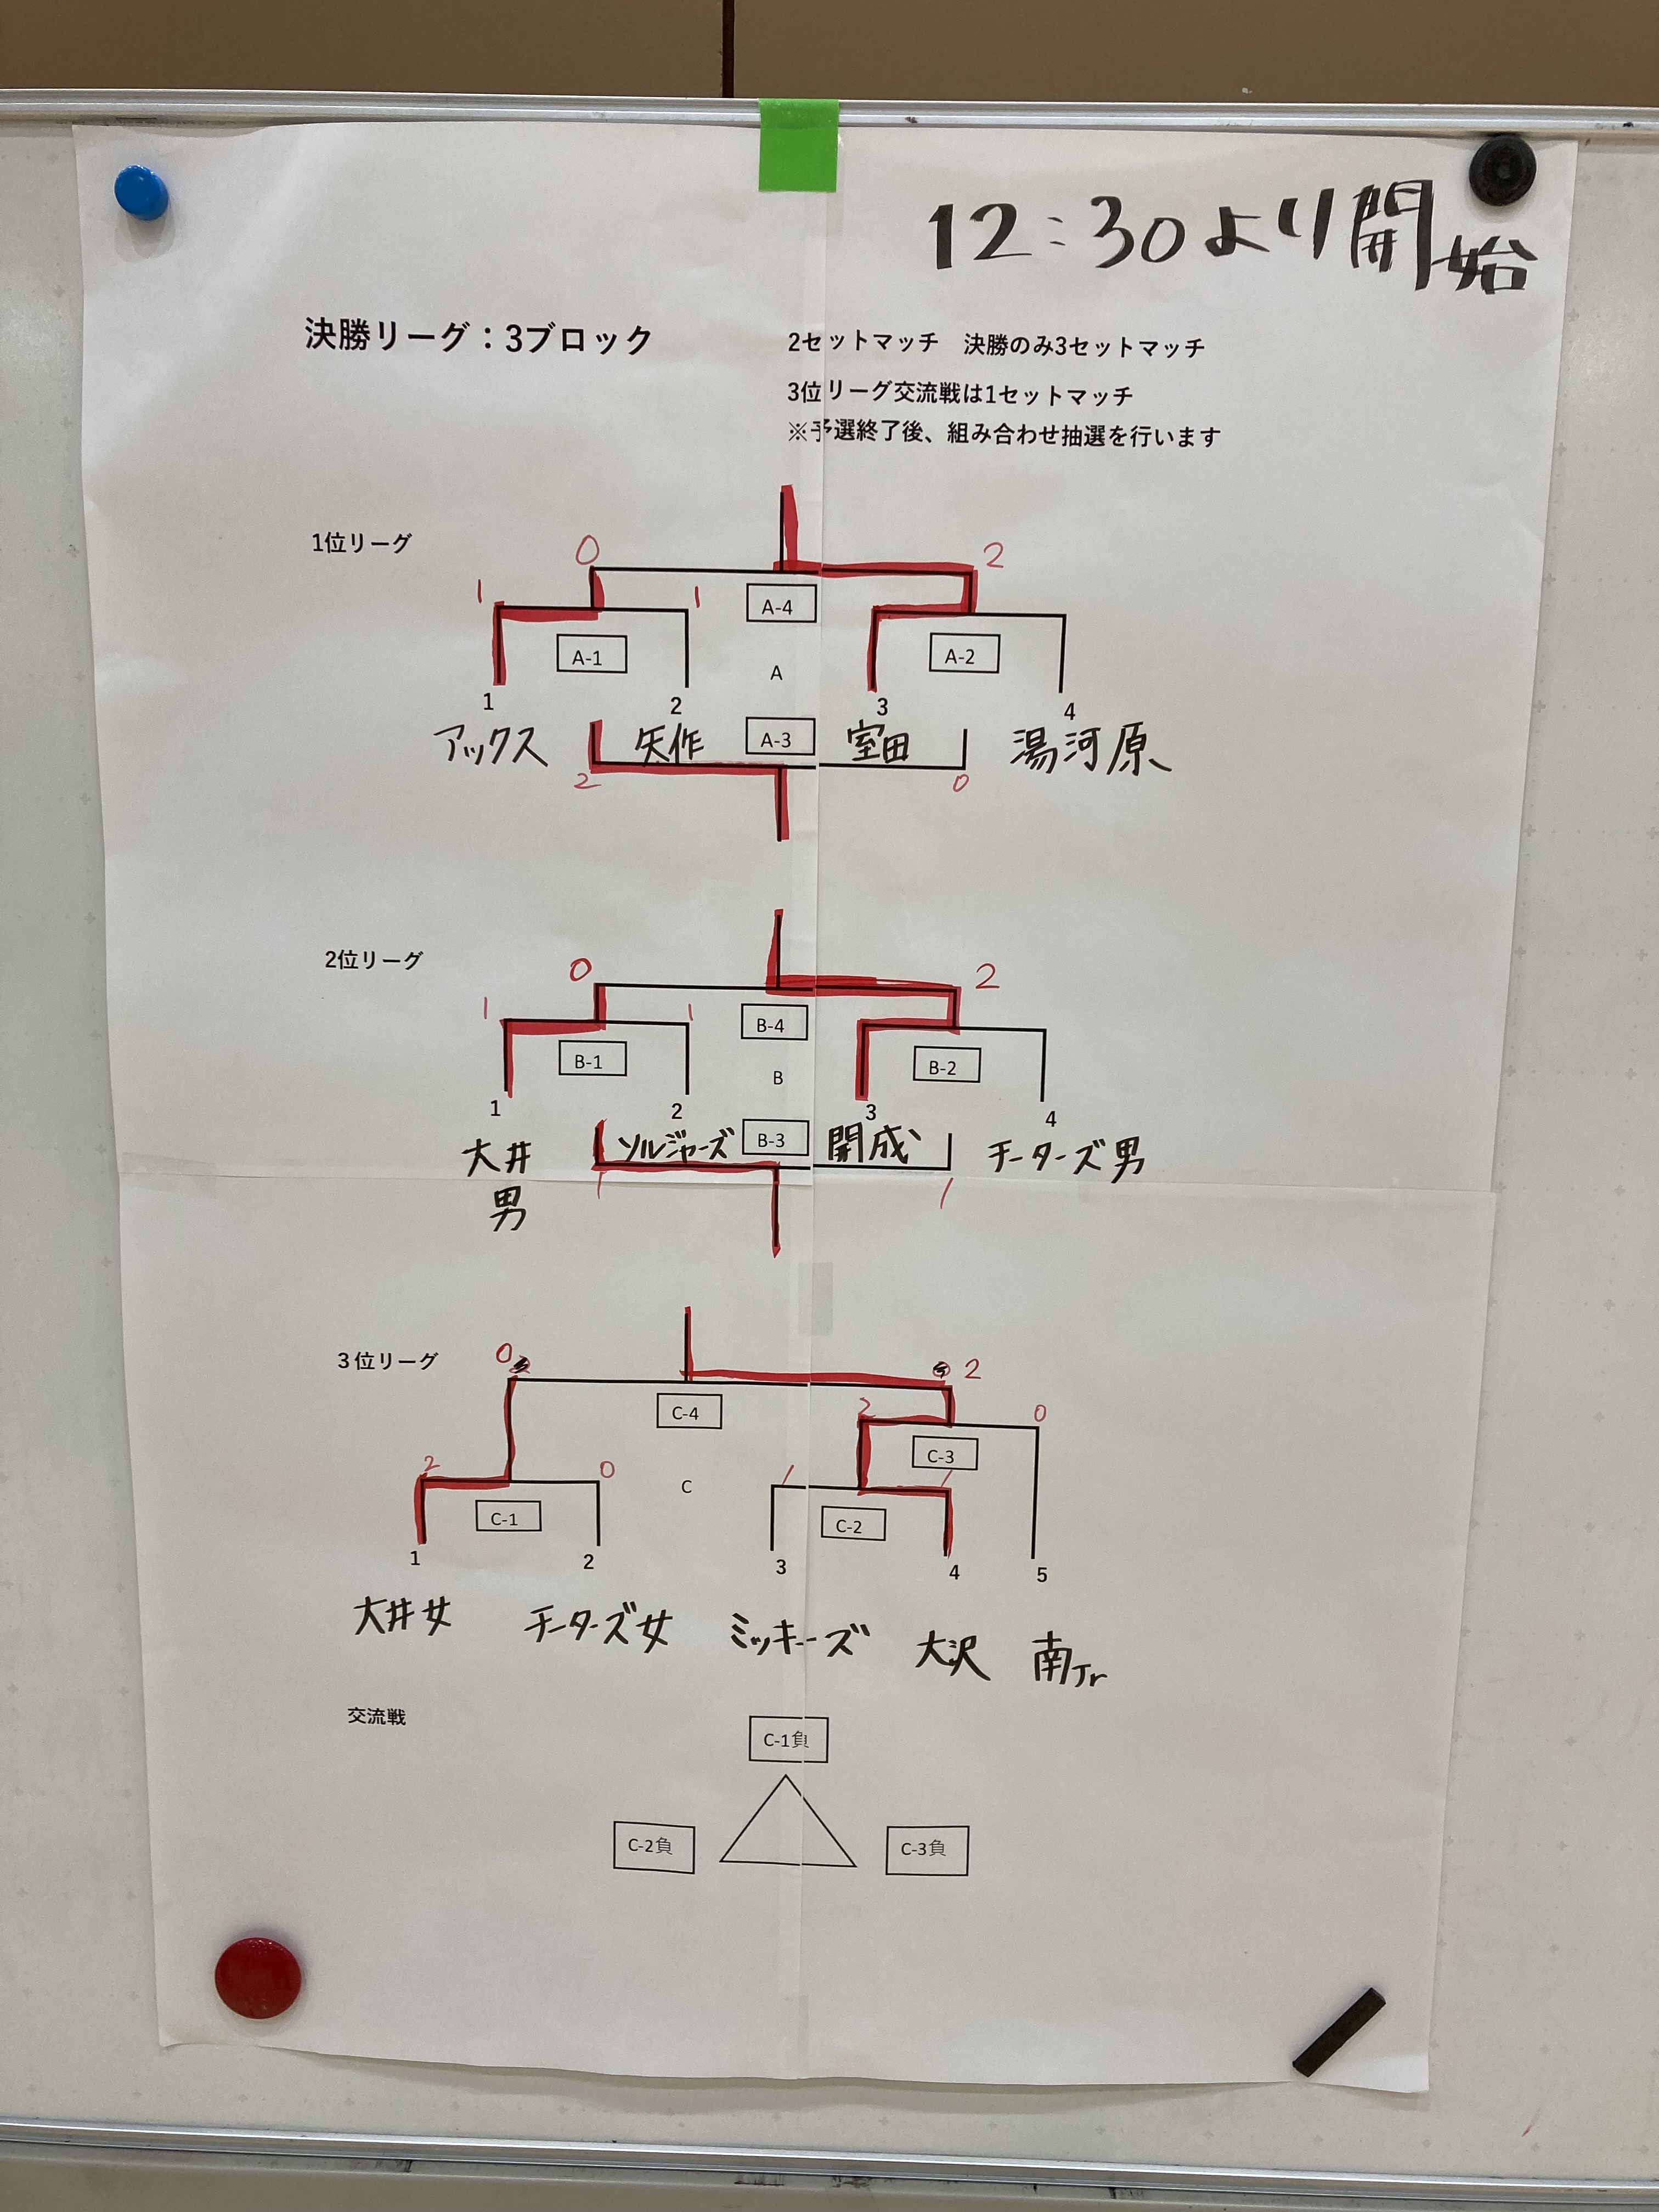 12:30より開始
決勝リーグ：3ブロック
2セットマッチ　決勝のみ3セットマッチ
3位リーグ交流戦は1セットマッチ
※予選終了後、組み合わせ抽選を行います
1位リーグ
0 2
1 1
A-4
A-1 A-2
A
1 2 3 4
アックス 矢作 A-3 室田 湯河原
2 0
2位リーグ
0 2
1 1
B-4
B-1 B-2
B
1 2 3 4
大井男 ソルジャーズ B-3 開成 チーターズ男
1 1
３位リーグ
0 2
C-4
2 0
C-3
2 0 1 1
C
C-1 C-2
1 2 3 4 5
大井女 チーターズ女 ミッキーズ 大沢 南Jr
交流戦
C-1負
C-2負 C-3負